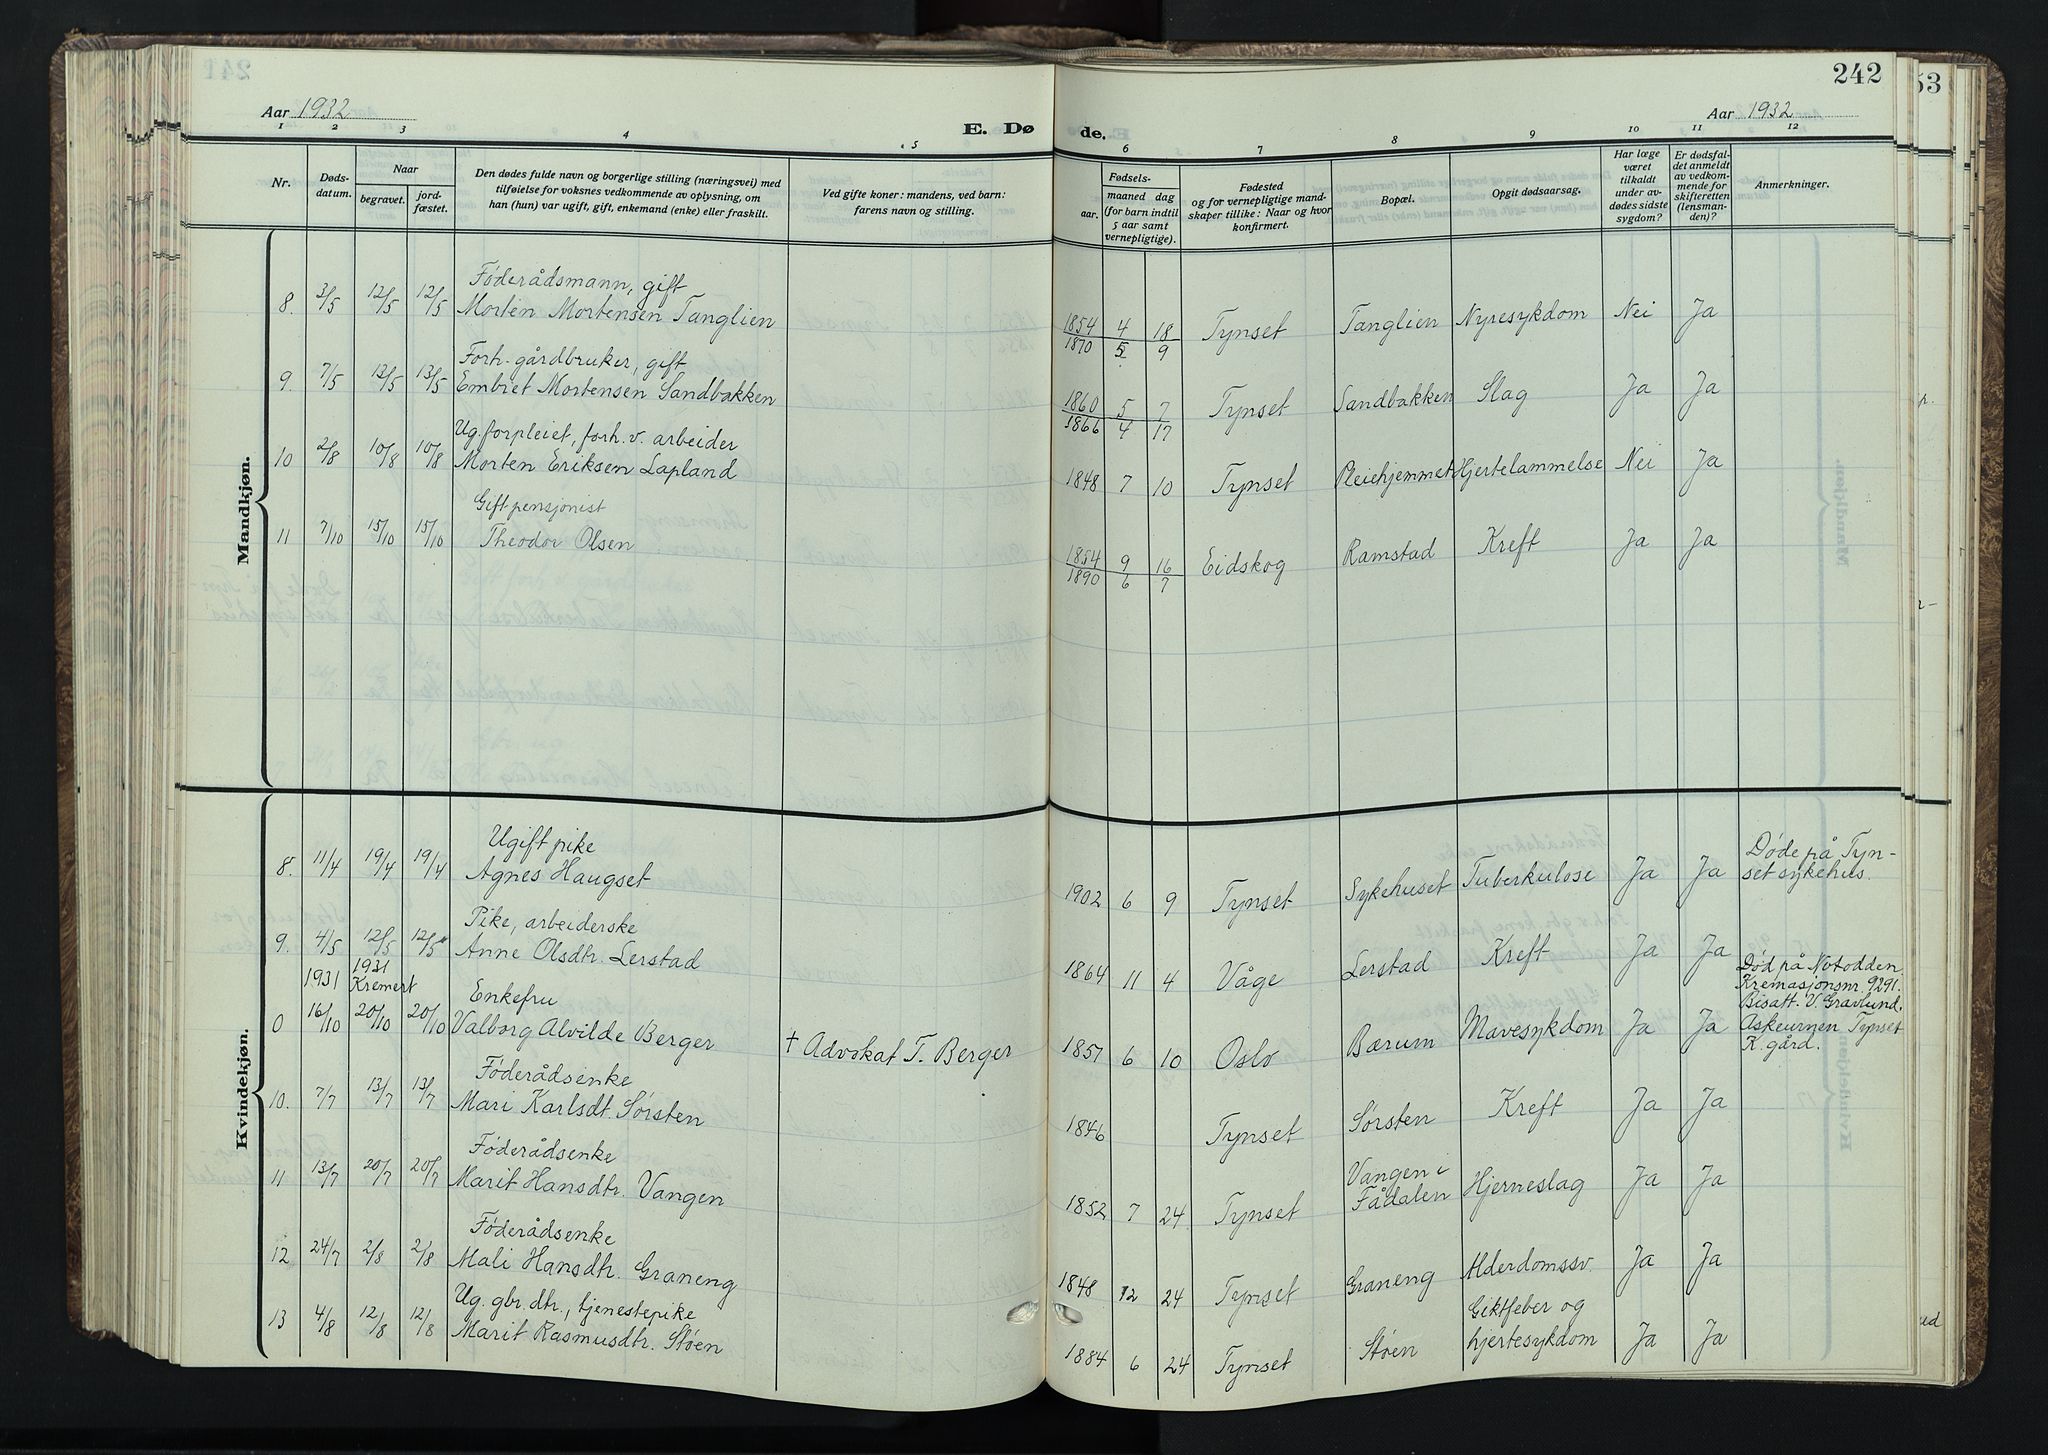 242
Aar 1932
E. Døde.
Aar 1932
1 2 3 4 5 6 7 8 9 10 11 12
Nr.
Dødsdatum.
Naar
begravet.
jordfæstet.
Den dødes fulde navn og borgerlige stilling (næringsvei) med
tilføielse for voksnes vedkommende av oplysning, om
han (hun) var ugift, gift, enkemand (enke) eller fraskilt.
Ved gifte koner: mandens, ved barn:
farens navn og stilling.
Fødsels-
aar.
maaned dag
(for barn indtil
5 aar samt
vernepligtige).
Fødested
og for vernepligtige mand-
skaper tillike: Naar og hvor
konfirmert.
Bopæl.
Opgit dødsaarsag.
Har læge
været
tilkaldt
under av-
dødes sidste
sygdom?
Er dødsfal-
det anmeldt
av vedkom-
mende for
skifteretten
(lensman-
den)?
Anmerkninger.
Mandkjøn.
Føderådsmann, gift
8. 3/5 12/5 12/5 Morten Mortensen Tanglien 1854 4 18 Tynset Tanglien Nyresykdom Nei Ja
1870 5 9
Forh. gårdbruker, gift
9. 7/5 13/5 13/5 Embret Mortensen Sandbakken 1860 5 7 Tynset Sandbakken Slag Ja Ja
1866 4 17
Ug. forpleiet, forh. v. arbeider
10 2/8 10/8 10/8 Morten Eriksen Lapland 1848 7 10 Tynset Pleiehjemmet Hjertelammelse Nei Ja
Gift pensjonist
11 7/10 15/10 15/10 Theodor Olsen 1854 9 16 Eidskog Ramstad Kreft Ja Ja
1890 6 7
Kvindekjøn.
Ugift pike
8. 11/4 19/4 19/4 Agnes Haugset 1902 6 9 Tynset Sykehuset Tuberkulose Ja Ja Døde på Tyn-
set sykehus.
Pike, arbeiderske
9. 4/5 12/5 12/5 Anne Olsdtr. Lerstad 1864 11 4 Våge Lerstad Kreft Ja Ja
1931 1931
Kremert
Enkefru
0 16/10 20/10 20/10 Valborg Alvilde Berger † Advokat T. Berger 1851 6 10 Oslo Bærum Mavesykdom Ja Ja
Død på Notodden
Kremasjonsnr. 9291.
Bisatt. V. Gravlund.
Askeurnen Tynset
K. gård.
Føderådsenke
10. 7/7 13/7 13/7 Mari Karlsdt. Sørsten 1846 Tynset Sørsten Kreft Ja Ja
Føderådsenke
11 13/7 20/7 20/7 Marit Hansdtr. Vangen 1852 7 24 Tynset Vangen i
Fådalen Hjerneslag Ja Ja
Føderådsenke
12 24/7 2/8 2/8 Mali Hansdtr. Graneng 1848 12 24 Tynset Graneng Alderdomssv. Ja Ja
Ug. gbr. dtr., tjenestepike
13 4/8 12/8 12/8 Marit Rasmusdtr. Støen 1884 6 24 Tynset Støen Giktfeber og
hjertesykdom Ja Ja